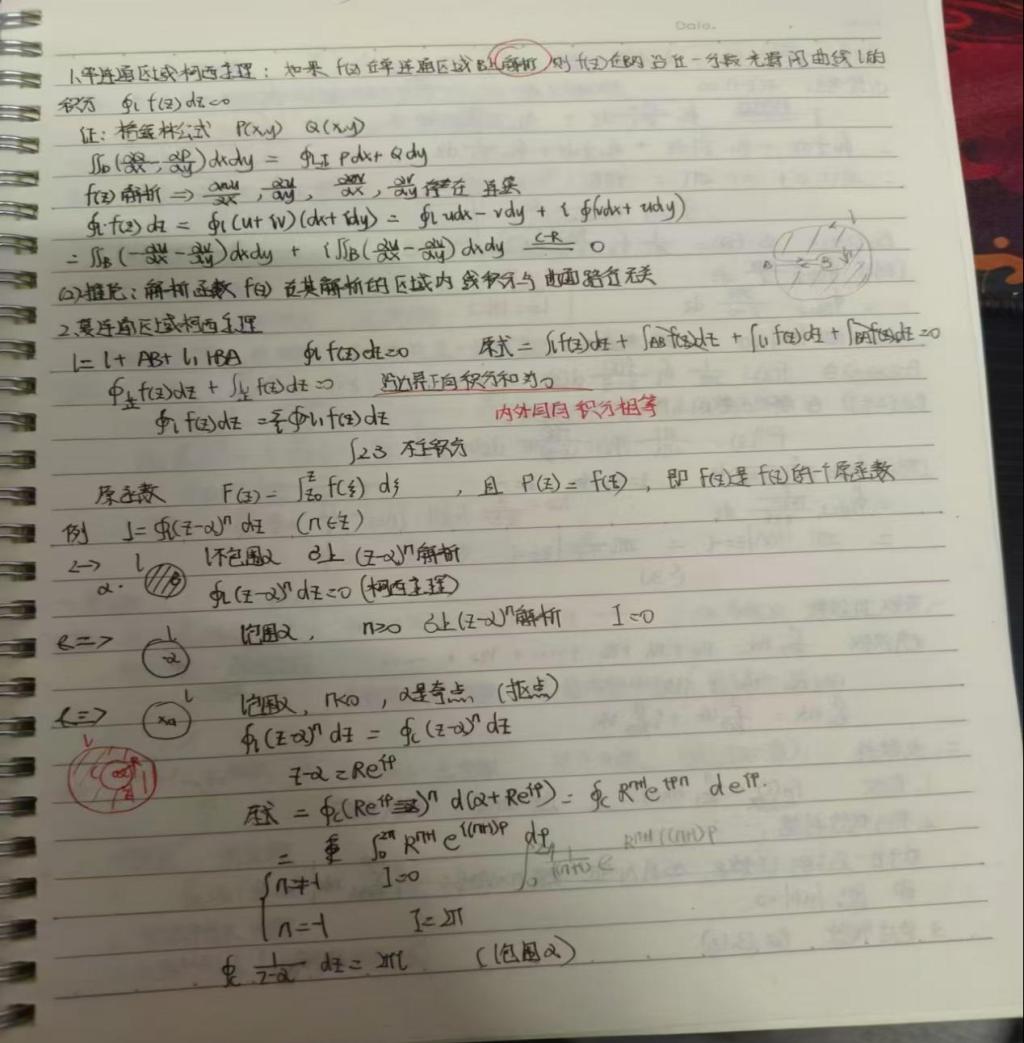 Date.
1.单连通区域柯西定理：如果 f(z) 在单连通区域B上解析 则 f(z) 在B内沿任一分段光滑闭曲线 l 的
积分 ∮l f(z) dz=0
证：格林公式 P(x,y) Q(x,y)
∬D(∂Q/∂x - ∂P/∂y)dxdy = ∮L正 Pdx+Qdy
f(z)解析 ⇒ ∂u/∂x, ∂u/∂y, ∂v/∂x, ∂v/∂y 存在 连续
∮l f(z) dz = ∮l (u+iv)(dx+idy) = ∮l udx-vdy + i∮(vdx+udy)
= ∬B(-∂v/∂x - ∂u/∂y)dxdy + i∬B(∂u/∂x - ∂v/∂y)dxdy C-R 0
(2)推论：解析函数 f(z) 在其解析的区域内 线积分与曲面路径无关
2.复连通区域柯西定理
l = l + AB + l1 + BA ∮l f(z)dz=0 原式 = ∫l f(z)dz + ∫AB f(z)dz + ∫l1 f(z)dz + ∫BA f(z)dz=0
∮l正 f(z)dz + ∫正 f(z)dz=0 沿边界正向积分和为0
∮l f(z)dz = Σ∮l1 f(z)dz 内外同向积分相等
§2.3 不定积分
原函数 F(z) = ∫z0^z f(ξ) dξ ，且 F'(z) = f(z)，即 F(z)是 f(z)的一个原函数
例 I=∮l(z-α)^n dz (n∈z)
l不包围α B上 (z-α)^n解析
α· B
∮l(z-α)^n dz=0 (柯西定理)
l l包围α， n≥0 B上(z-α)^n解析 I=0
α
l l包围α，n<0，α是奇点 (极点)
∮l(z-α)^n dz = ∮c(z-α)^n dz
z-α = Re^iφ
原式 = ∮c(Re^iφ)^n d(α+Re^iφ) = ∮c R^n+1 e^iφn de^iφ.
= ∫0^2π R^n+1 e^i(n+1)φ dφ
n≠-1 I=0
n=-1 I=2π
∮c 1/(z-α) dz = 2πi (l包围α)